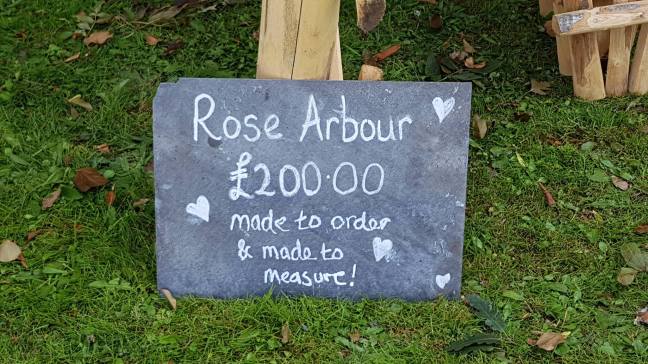 Rose Arbour
£200.00
made to order
& made to
measure!